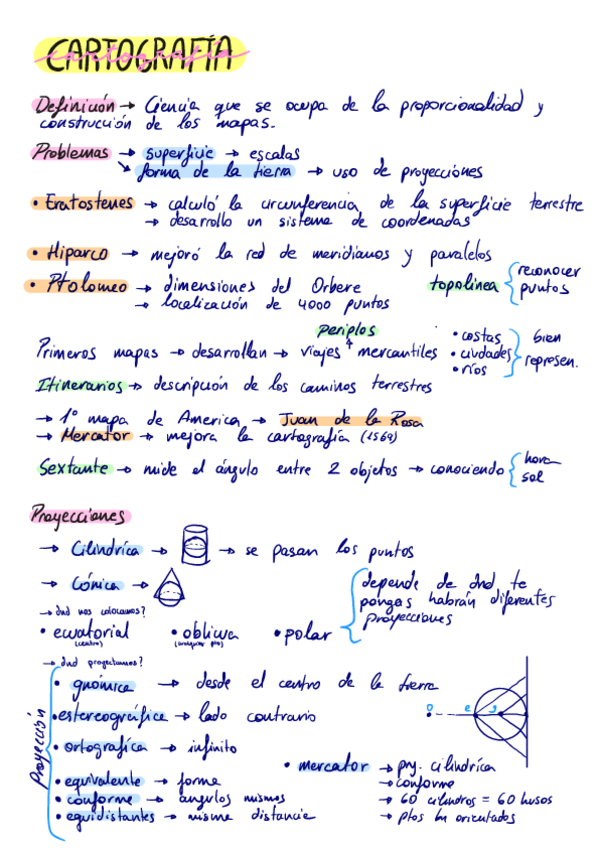 CARTOGRAFÍA
cartografía
Definición → Ciencia que se ocupa de la proporcionalidad y
construcción de los mapas.
Problemas → superficie → escalas
↘ forma de la tierra → uso de proyecciones
• Eratostenes → calculó la circunferencia de la superficie terrestre
→ desarrollo un sistema de coordenadas
• Hiparco → mejoró la red de meridianos y paralelos
• Ptolomeo → dimensiones del Orbere
→ localización de 4000 puntos
topolinea { reconocer
puntos
periplos
Primeros mapas → desarrollan → viajes mercantiles
• costas
• ciudades
• ríos
} bien
represen.
Itinerarios → descripción de los caminos terrestres
→ 1º mapa de America → Juan de la Rosa
→ Mercator → mejora la cartografía (1569)
Sextante → mide el ángulo entre 2 objetos → conociendo { hora
sol
Proyecciones
→ Cilíndrica → → se pasan los puntos
→ Cónica →
→ dnd nos colocamos?
• ecuatorial • oblicua • polar
(centro)
{ depende de dnd te
pongas habrán diferentes
proyecciones
→ dnd proyectamos?
Proyección
• gnómica → desde el centro de la tierra
• estereográfica → lado contrario
• ortografica → infinito
• equivalente → forma
• conforme → angulos mismos
• equidistantes → misma distancia
• mercator → pry. cilíndrica
→ conforme
→ 60 cilindros = 60 husos
→ ptos bn orientados